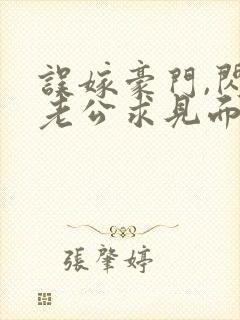 誤嫁豪門,閃
老公求見而
張肇婷